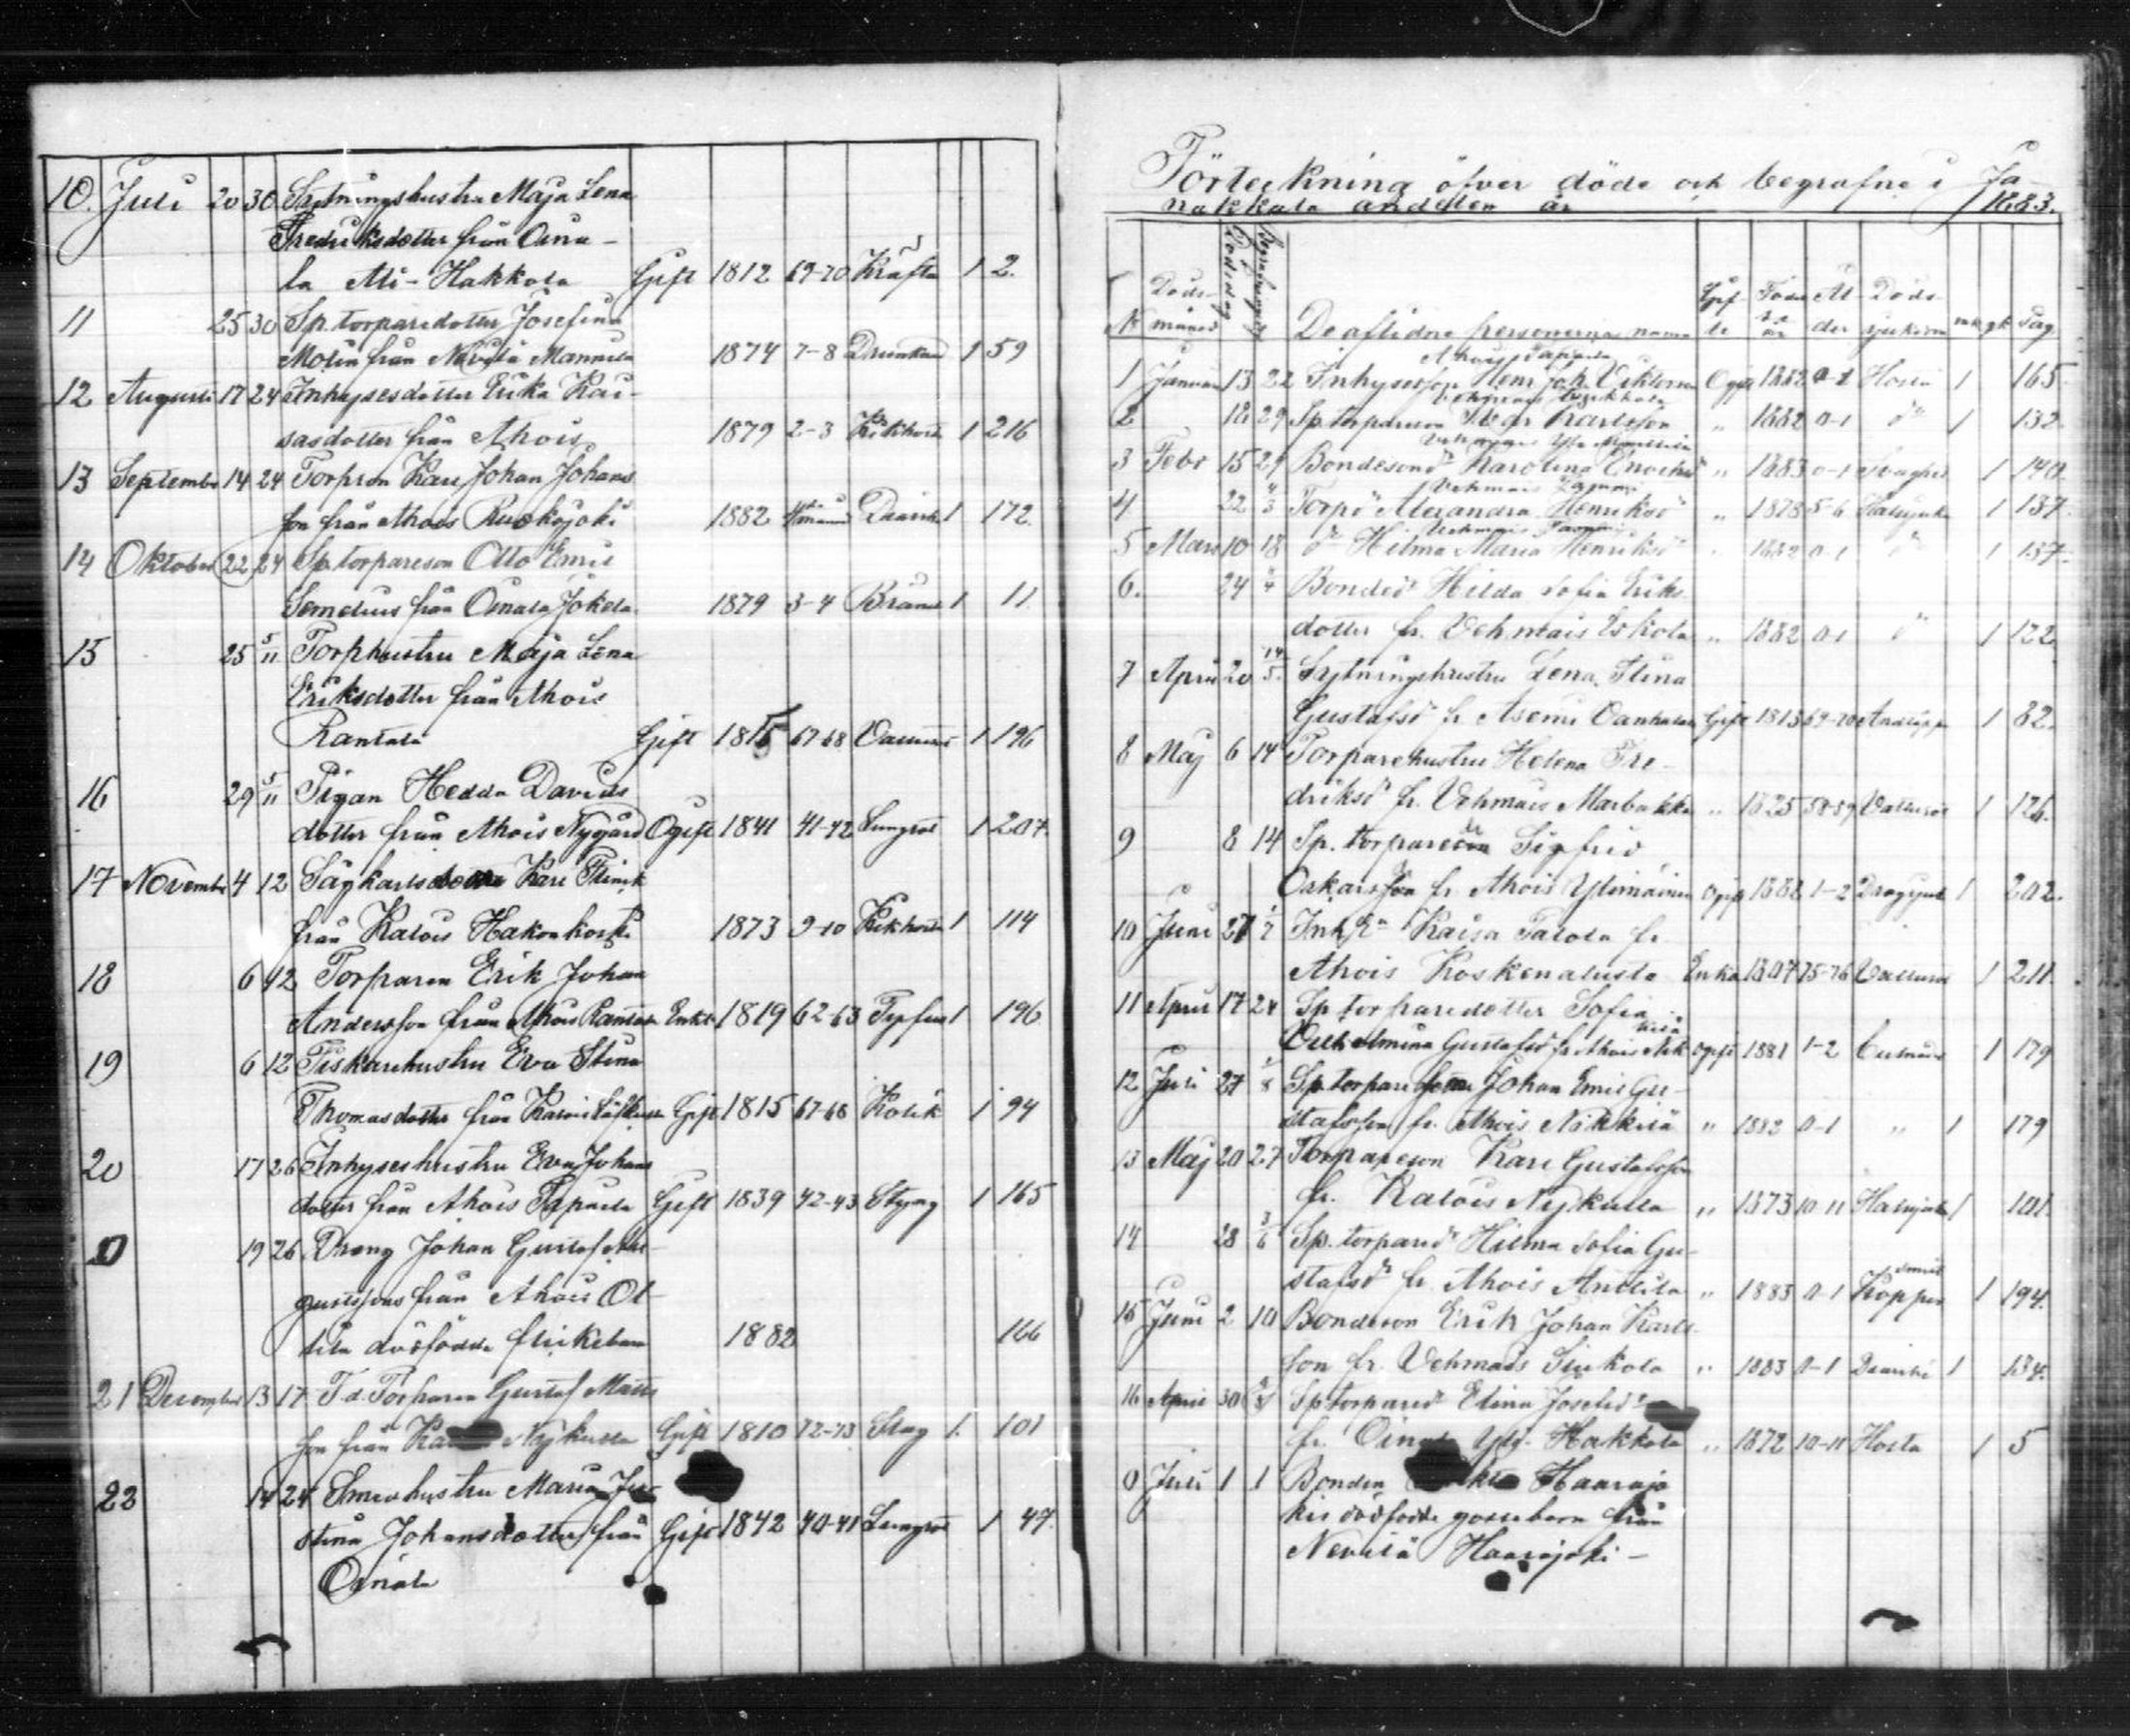 10. Juli 20 30 Sytningshustru Maja Lena
Fredriksdotter från Oina-
la Ali-Hakkola Gift 1812 69-70 Kräfta 1 2.
11 25 30 Sp. torparedotter Josefina
Molin från Nevilä Mannila 1874 7-8 Drunknad 1 59
12 Augusti 17 24 Inhysesdotter Erika Kai-
sasdotter från Ahois 1879 2-3 Kikhosta 1 216
13 September 14 24 Torpson Karl Johan Johans
son från Ahois Ruokojoki 1882 Diarrh. 1 172.
14 Oktober 22 24 Sp torpareson Otto Emil
Semelius från Oinala Jokela 1879 3-4 Bränd 1 11.
15 25 5/11 Torphustru Maja Lena
Eriksdotter från Ahois
Rantala Gift 1815 67-68 1 196
16 29 5/11 Pigan Hedda Davids
dotter från Ahois Nygård Ogift 1841 41-42 Lungsot 1 207
17 November 4 12 Sågkarls Karl
från Kalois Hakonkoski 1873 9-10 Kikhosta 1 114
18 6 12 Torparen Erik Johan
Andersson från Ahois Rantala Enkl. 1819 62-63 Tyfus 1 196
19 6 12 Fiskarehustru Eva Stina
Thomasdotter från Gift 1815 67-68 Kolik 1 94
20 17 26 Inhyseshustru Eva Johans
dotter från Ahois Tapaila Gift 1839 42-43 Slag 1 165
0 19 26 Dräng Johan Gustaf Au-
gustssons från Ahois Ol-
lila dödfödda flickebarn 1882 166
21 December 13 17 F.d. Torparen Gustaf Matts
son från Nykulla Gift 1810 72-73 Slag 1. 101
22 14 24 Smedhustru Maria Ju-
stina Johansdotter från Gift 1842 40-41 Lungsot 1 47.
Oinala
Förteckning öfver döde och begrafne i Ja-
nakkala andelen år 1883.
N Döds månad Dödsdag Begrafningsdag De aflidne personernas namn Gif te Föde lse år Ål der Döds sjukdom mk gk Pag
Ahois Tapaila
1 Januari 13 22 Inhyseson Joh. Viktorsson Ogift 1882 0-1 Hosta 1 165
2 18 29 Sp. torpareson Karlsson " 1882 0-1 d:o 1 132.
3 Febr 15 29 Bondesond:r Karolina Enochsd:r " 1883 0-1 Svaghet 1 140
4 22 4/3 Torpd:r Alexandra Henriksd:r " 1878 5-6 Halssjuka 1 137.
5 Mars 10 18 d:o Hilma Maria Henriksd:r " 1882 0-1 d:o 1 137.
6. 24 Bonded:r Hilda Sofia Eriks
dotter fr. Vehmais Eskola " 1882 0-1 d:o 1 122.
7 April 20 14/5 Sytningshustru Lena Stina
Gustafsd:r fr Asemi Vanhala Gift 1813 69-70 Andtäppa 1 82.
8 Maj 6 14 Torparehustru Helena Fre-
driksd:r fr. Vehmais Marbakka " 1825 58-59 Vattusot 1 126.
9 8 14 Sp. torpareson Sigfrid
Oskarsson fr. Ahois Ylimäinen Ogift 1882 1-2 Dragsjuk 1 202.
10 Juni 27 1/7 Kaisa Talola fr.
Ahois Koskenalusta Enka 1807 75-76 Vattusot 1 211.
11 April 17 24 Sp torparedotter Sofia
Vilhelmina Gustafsd fr Ahois Nikkilä ogift 1881 1-2 1 179
12 Juli 27 1/8 Sp torpareson Johan Emil Gu-
stafsson fr. Ahois Nikkilä " 1882 0-1 " 1 179
13 Maj 20 27 Torpareson Karl Gustafsson
fr. Kalois Nykulla " 1873 10-11 Halssjuka 1 101.
14 28 3/6 Sp. torpared:r Hilma Sofia Gu-
stafsd:r fr. Ahois Anttila " 1883 0-1 Koppor 1 194.
15 Juni 2 10 Bondeson Erik Johan Karls
son fr. Vehmais Siukola " 1883 0-1 Diarrhé 1 134.
16 April 30 Sp torpared:r Elina Josefsd:r
fr. Oinala Yli-Hakkola " 1872 10-11 Hosta 1 5
0 Juli 1 1 Bonden Haarajo
kis dödfödde gossebarn från
Nevilä Haarajoki -